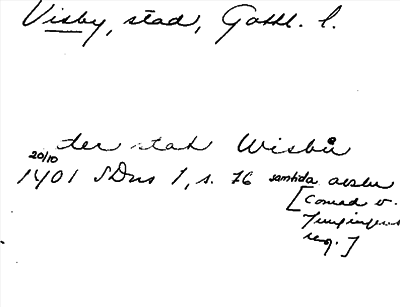 Visby, stad, Gotl. l.
der stat Wisbu
20/10
1401 SDns 1, s. 76 samtida avskr
[Conrad v.
Jungingens
reg.]